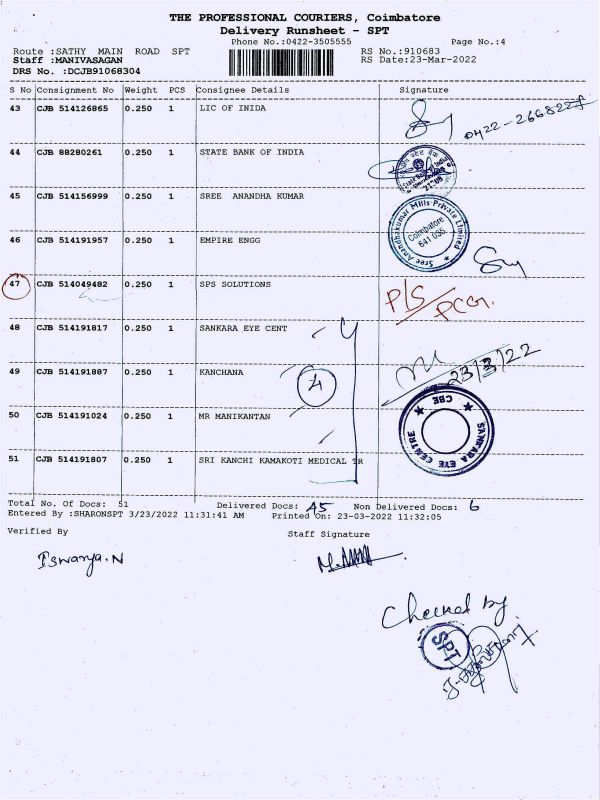 THE PROFESSIONAL COURIERS, Coimbatore
Delivery Runsheet - SPT
Phone No.:0422-3505555 Page No.:4
Route :SATHY MAIN ROAD SPT RS No.:910683
Staff :MANIVASAGAN RS Date:23-Mar-2022
DRS No. :DCJB91068304
S No Consignment No Weight PCS Consignee Details Signature
43 CJB 514126865 0.250 1 LIC OF INIDA
44 CJB 88280261 0.250 1 STATE BANK OF INDIA
45 CJB 514156999 0.250 1 SREE ANANDHA KUMAR
Sree Anandhakumar Mills Private Limited
Coimbatore
641 035
46 CJB 514191957 0.250 1 EMPIRE ENGG
47 CJB 514049482 0.250 1 SPS SOLUTIONS
P/S
48 CJB 514191817 0.250 1 SANKARA EYE CENT
23/3/22
49 CJB 514191887 0.250 1 KANCHANA
4
50 CJB 514191024 0.250 1 MR MANIKANTAN
SANKARA EYE CENTRE
CBE
51 CJB 514191807 0.250 1 SRI KANCHI KAMAKOTI MEDICAL TR
Total No. Of Docs: 51 Delivered Docs: 45 Non Delivered Docs: 6
Entered By :SHARONSPT 3/23/2022 11:31:41 AM Printed On: 23-03-2022 11:32:05
Verified By Staff Signature
Iswarya.N
Checked by
SPT